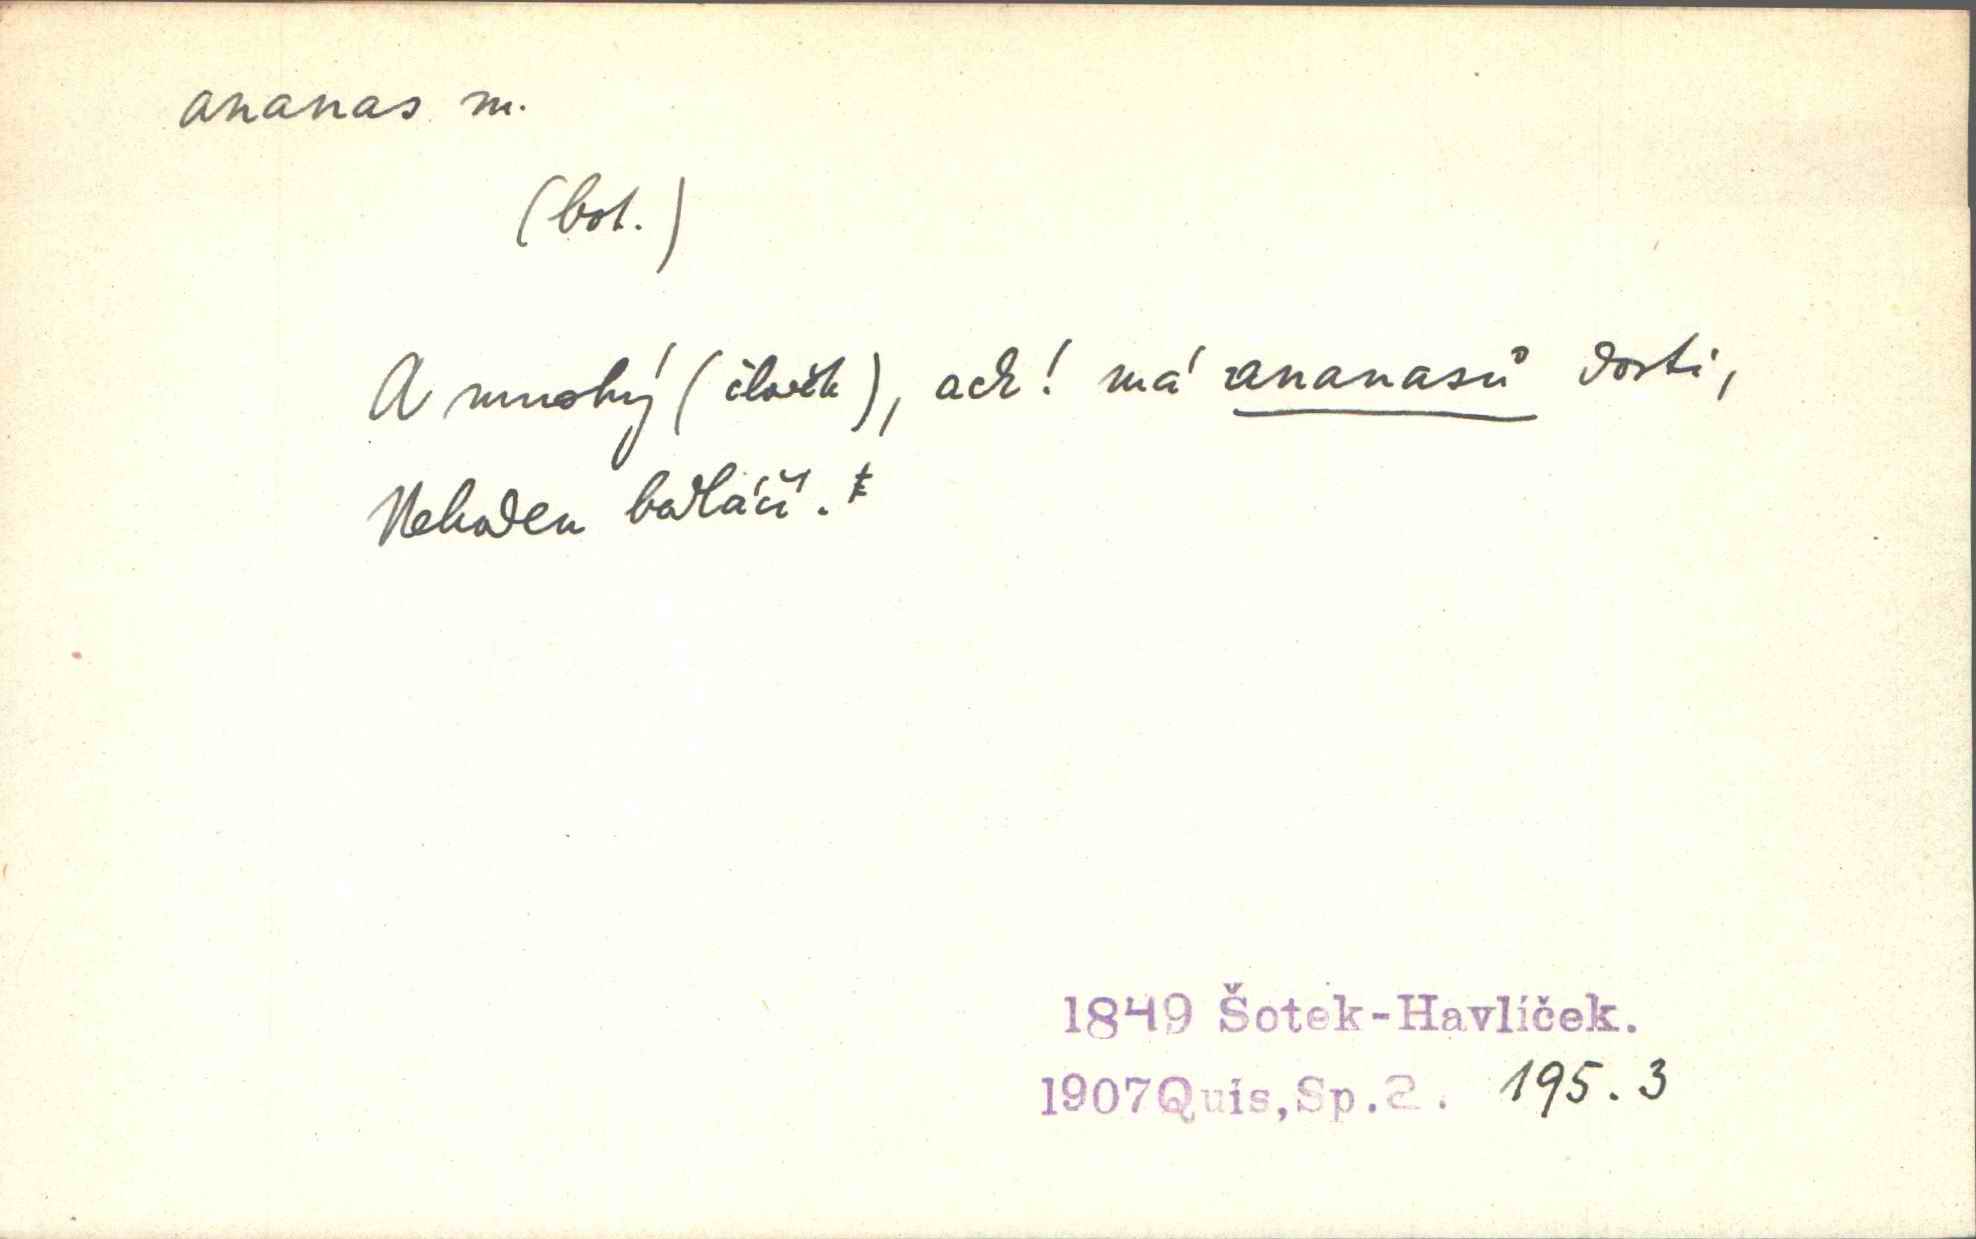 ananas m.
(bot.)
A mnohý (člověk), ach! má ananasů dosti,
Nehoden bodláčí.
1849 Šotek-Havlíček.
1907 Quis, Sp. 2. 195. 3